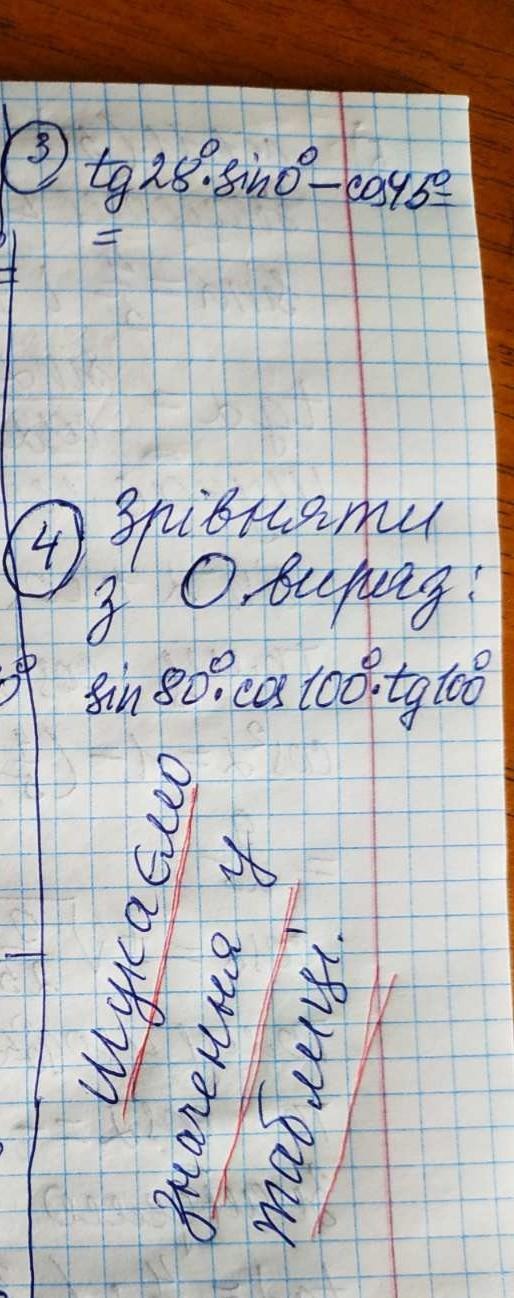 3 tg28°·sin0°-cos45°=
=
4 Зрівняти
з 0 вираз:
sin80°·cos100°·tg100°
Шукаємо
значення у
таблиці.